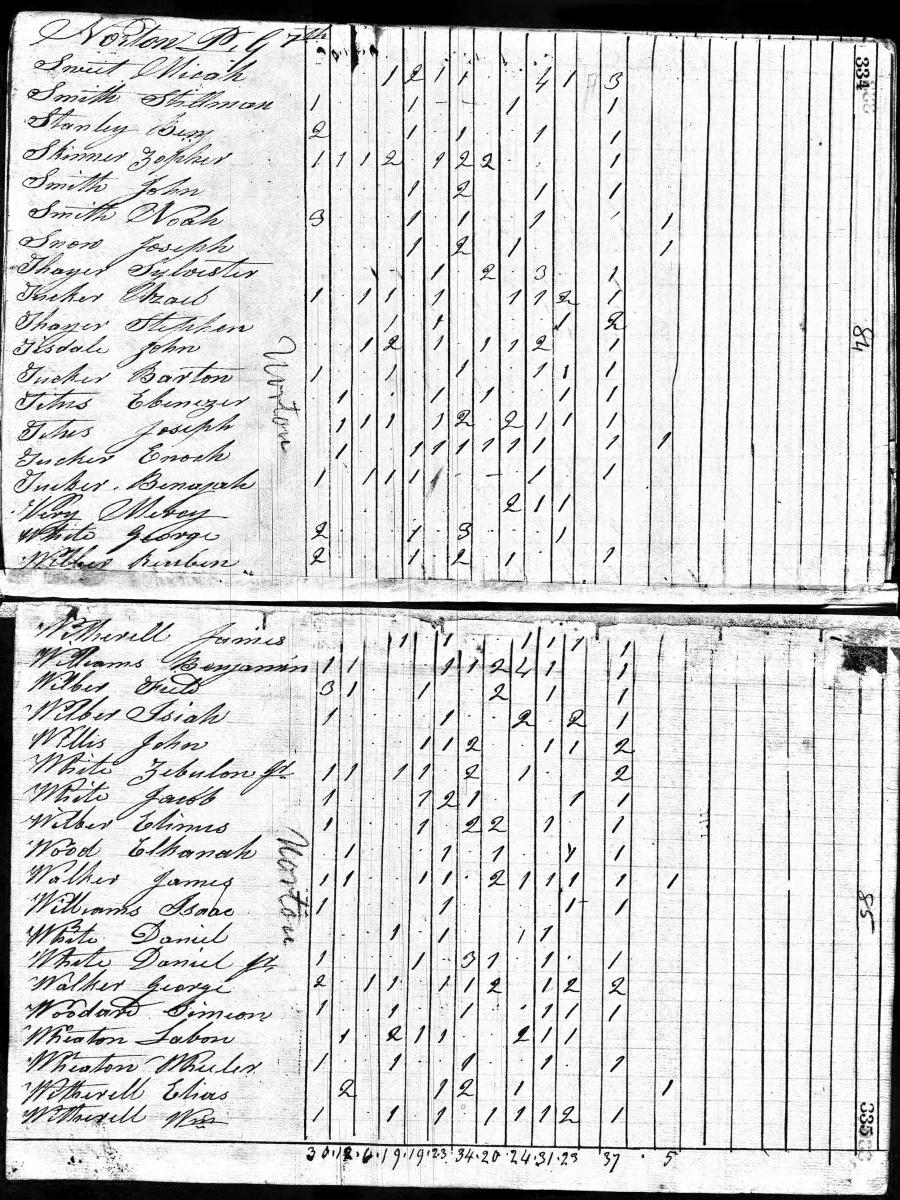 Norton P. G 7th
Sweet Micah 1 2 1 1 4 1 3
Smith Stillman 1 1 1 1
Stanley Benj 2 1 1 1 1
Skinner Zopher 1 1 1 2 1 2 2 1
Smith John 1 2 1 1
Smith Noah 3 1 1 1 1
Snow Joseph 1 2 1 1
Thayer Sylvester 1 2 3 1
Tucker 1 1 1 1 1 1 2 1
Thayer Stephen 1 1 1 2
Tisdale John 1 2 1 1 1 2 1
Tucker Barton 1 1 1 1 1 1
Titus Ebenezer 1 1 1 1 1 1
Titus Joseph 1 1 1 1 2 2 1 1 1
Tucker Enoch 1 1 1 1 1 1 1 1 1
Tucker Benajah 1 1 1 1 1 1
Very Mercy 2 1 1
White George 2 1 3 1
Wilber Reuben 2 1 2 1 1
Norton
334
84
Witherell James 1 1 1 1 1 1
Williams Benjamin 1 1 1 1 2 4 1 1
Wilber Field 3 1 1 2 1 1
Wilber Isiah 1 1 2 2 1
Willis John 1 1 2 1 1 2
White Zebulon Jr 1 1 1 1 2 1 2
White Jacob 1 1 2 1 1 1
Wilber 1 1 2 2 1 1
Wood Elkanah 1 1 1 1 1
Walker James 1 1 1 1 2 1 1 1 1 1
Williams Isaac 1 1 1 1
White Daniel 1 1 1 1
White Daniel Jr 1 1 3 1 1 1
Walker George 2 1 1 1 1 2 1 2 2
Woodard Simeon 1 1 1 1 1 1
Wheaton Labon 1 2 1 1 2 1 1
Wheaton Wheeler 1 1 1 1 1
Witherell Elias 2 1 2 1 1
Witherell Wm 1 1 1 1 1 1 2 1
Norton
85
335
30 12 6 19 19 23 34 20 24 31 23 37 5